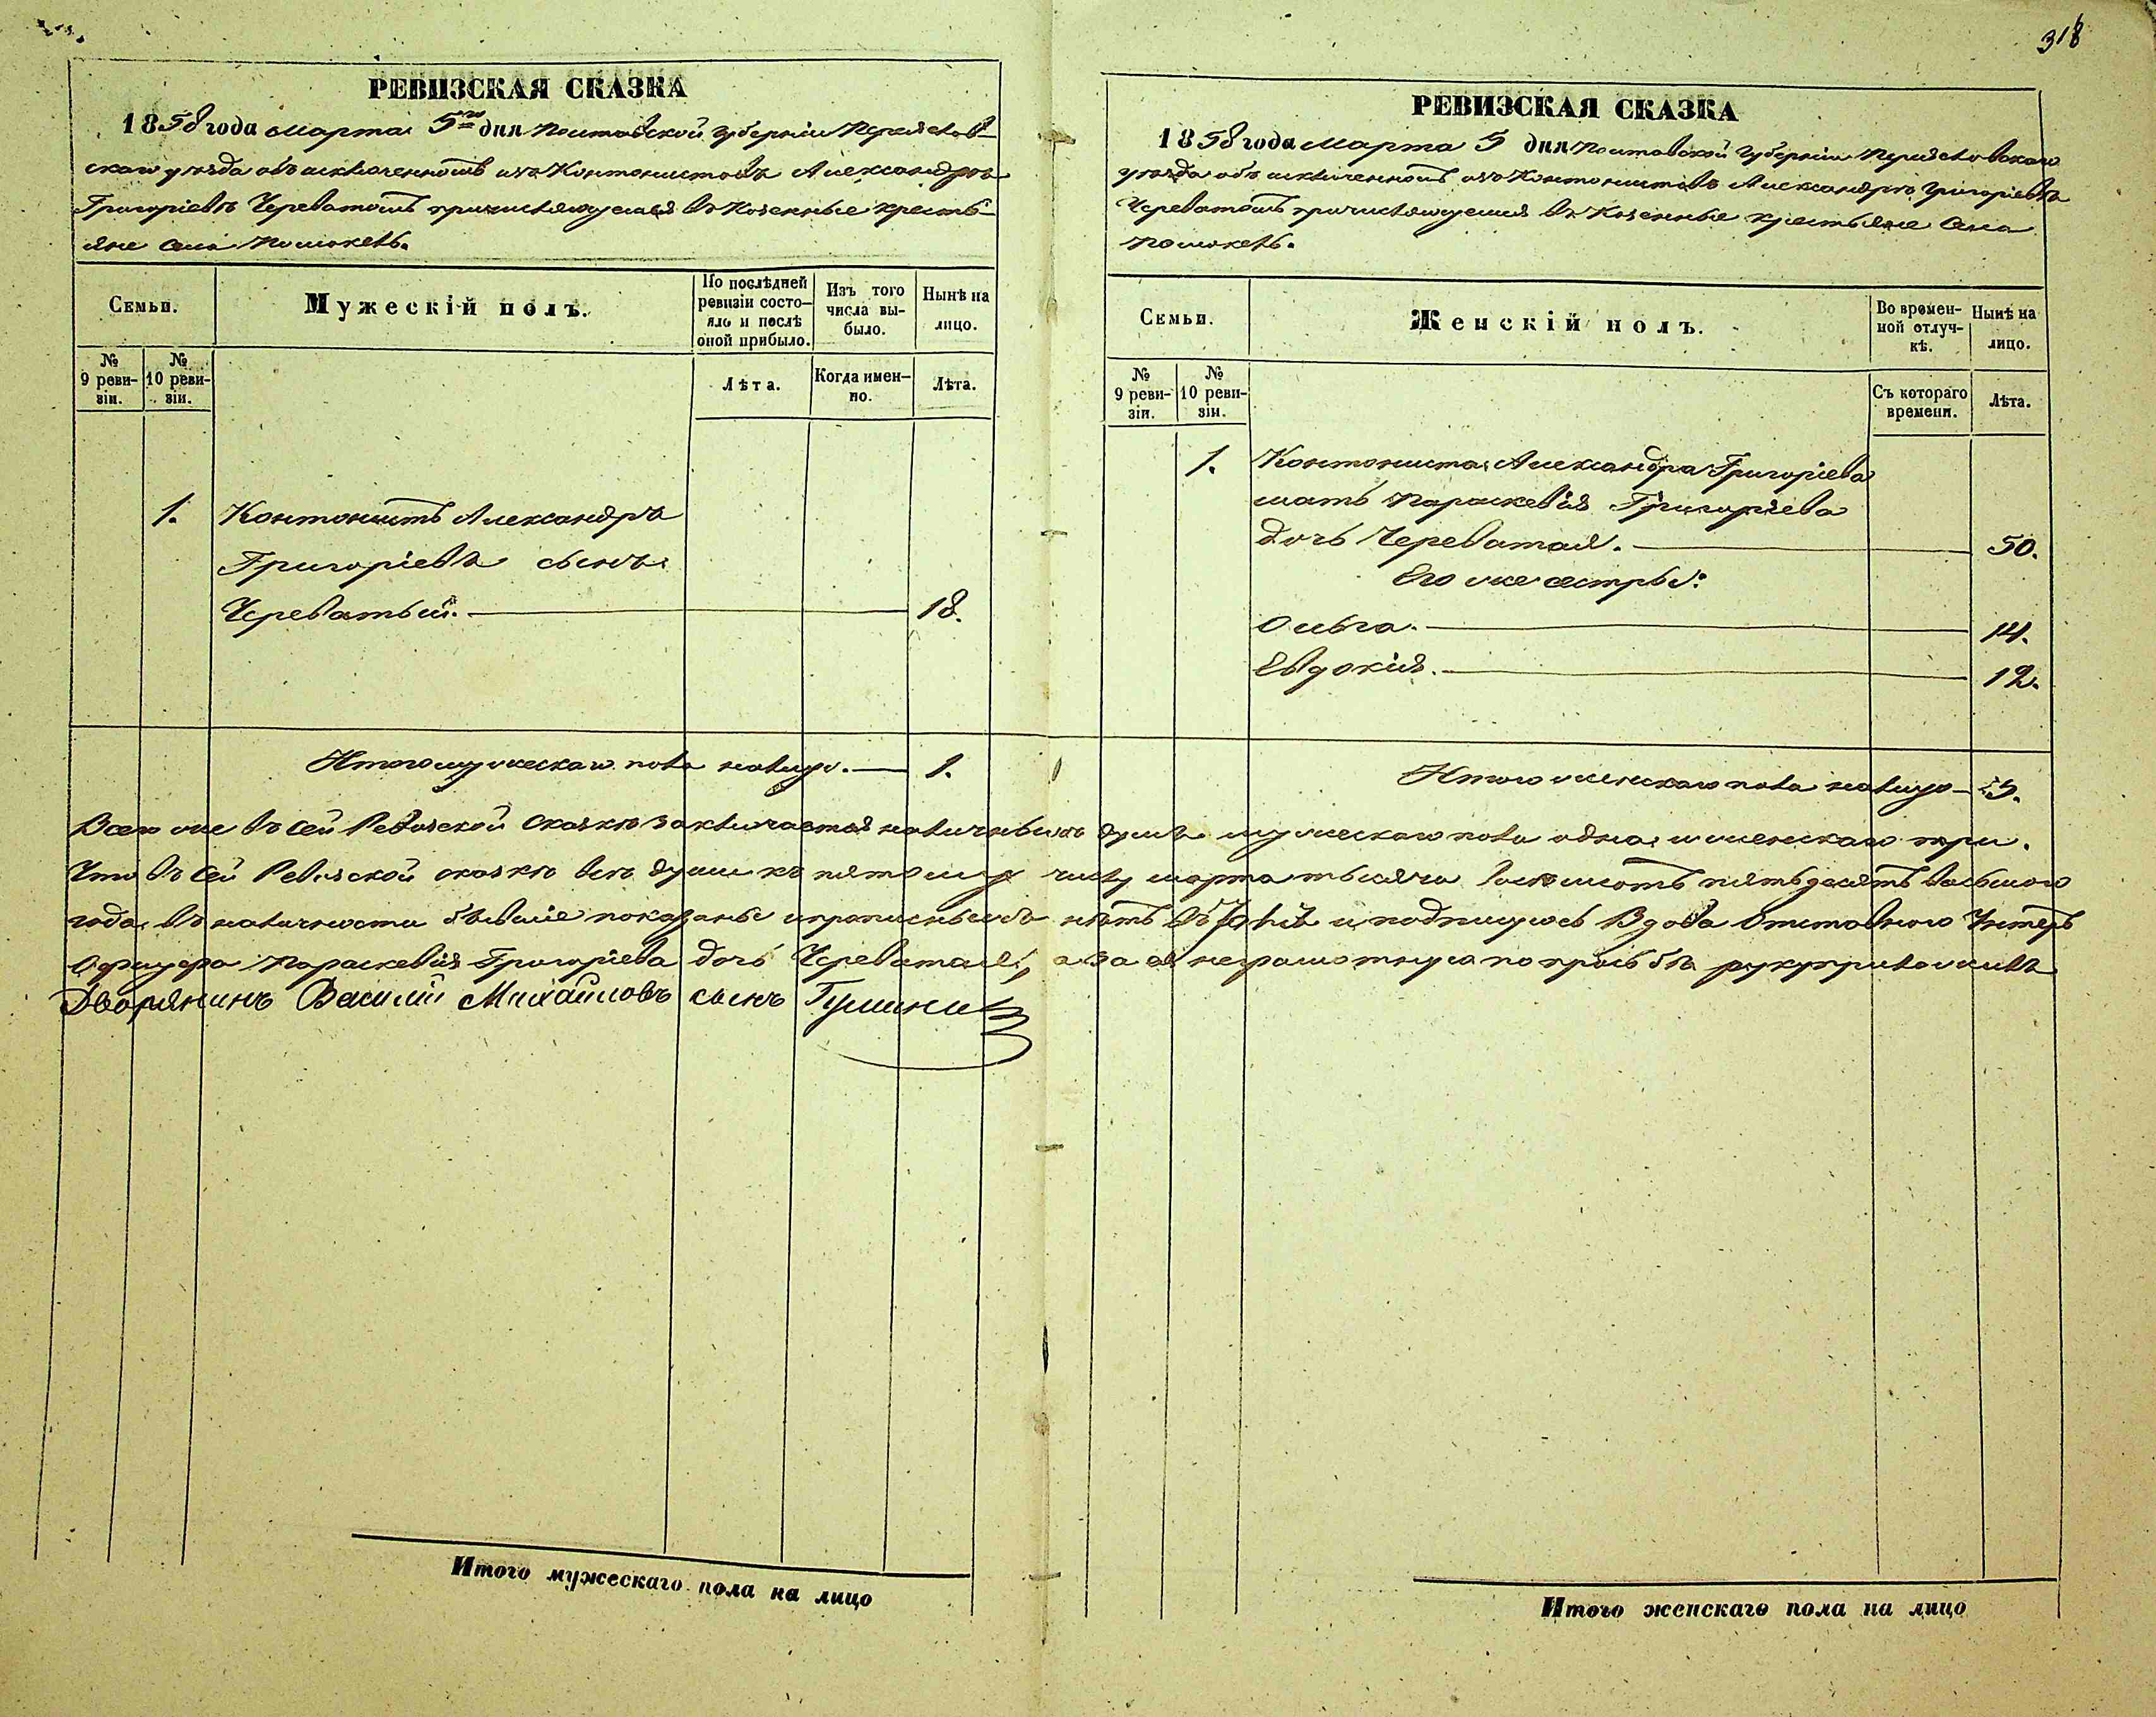 318
РЕВИЗСКАЯ СКАЗКА
1858 года марта 5го дня Полтавской губерніи Переяслов-
скаго уѣзда объ исключенномъ изъ Кантонистовъ Александрѣ
Григоріевѣ Череватомъ причисляющемся въ Козенные кресть-
яне села Помоклъ.
Семьи.
Мужескій полъ.
По послѣдней ревизіи состояло и послѣ оной прибыло.
Изъ того числа выбыло.
Нынѣ на лицо.
№ 9 ревизіи.
№ 10 ревизіи.
Лѣта.
Когда именно.
Лѣта.
1. Контонистъ Александръ
Григоріевъ сынъ
Череватый. 18.
Итого мужескаго пола налицо. 1.
РЕВИЗСКАЯ СКАЗКА
1858 года Марта 5 дня Полтавской Губерніи Переясловскаго
уѣзда объ исключенномъ изъ Контонистовъ Александрѣ Григоріевѣ
Череватомъ причисляющемся въ Козенные крестьяне Села
Помоклъ.
Семьи.
Женскій полъ.
Во временной отлучкѣ.
Нынѣ на лицо.
№ 9 ревизіи.
№ 10 ревизіи.
Съ котораго времени.
Лѣта.
1. Контониста Александра Григоріева
мать Параскевія Григоріева
дочь Череватая. 50.
Его же сестры:
Ольга. 14.
Евдокія. 12.
Итого женскаго пола налицо 3.
Всего же въ сей Ревизской сказкѣ заключается наличныхъ душъ мужескаго пола одна и женскаго три.
Что въ сей Ревизской сказкѣ всѣ души къ пятому числу марта тысяча восемсотъ пятьдесятъ васьмого
года въ наличности бывшіе показаны и прописныхъ нѣтъ въ и подпишуюсь Вдова Отставного Унтеръ
Офицера Параскевія Григоріева дочь Череватая, а за ея неграмотную по прозьбѣ руку приложилъ
Дворянинъ Василій Михайловъ сынъ
Итого мужескаго пола на лицо
Итого женскаго пола на лицо